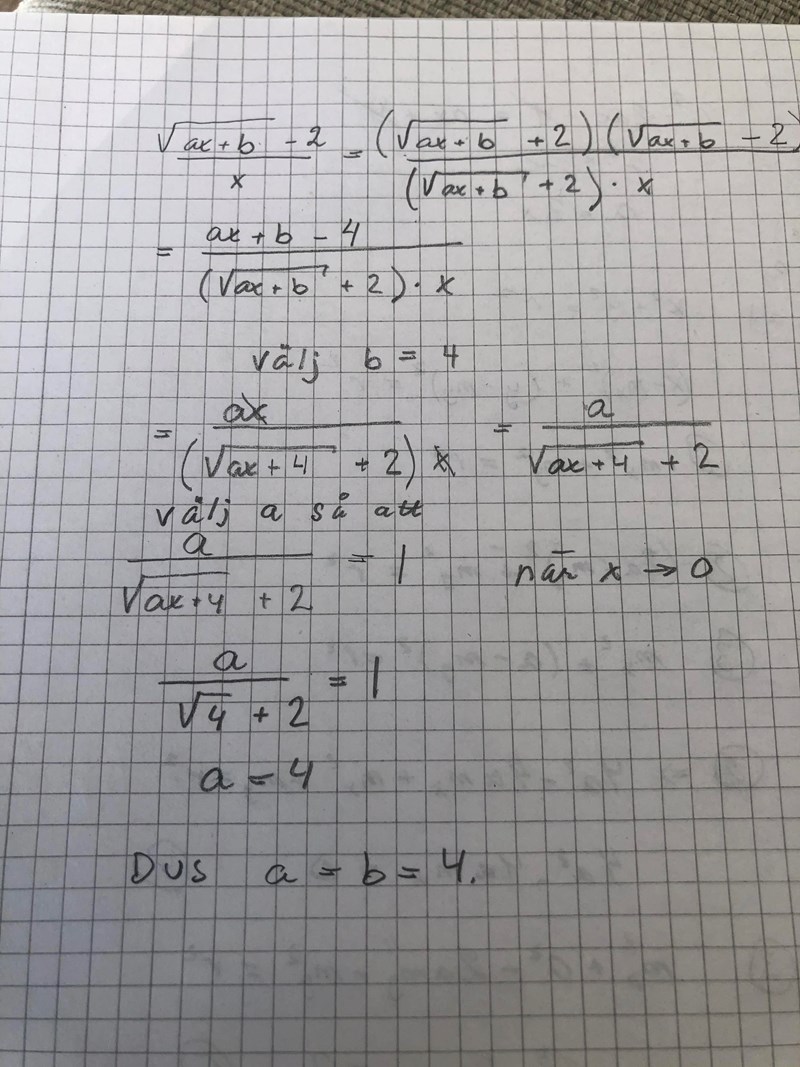 (√(ax+b) - 2)/x = ((√(ax+b) + 2)(√(ax+b) - 2))/((√(ax+b) + 2) · x)
= (ax + b - 4)/((√(ax+b) + 2) · x)
välj b = 4
= ax/((√(ax+4) + 2) x) = a/(√(ax+4) + 2)
välj a så att
a/(√(ax+4) + 2) = 1 när x → 0
a/(√4 + 2) = 1
a = 4
DVS a = b = 4.